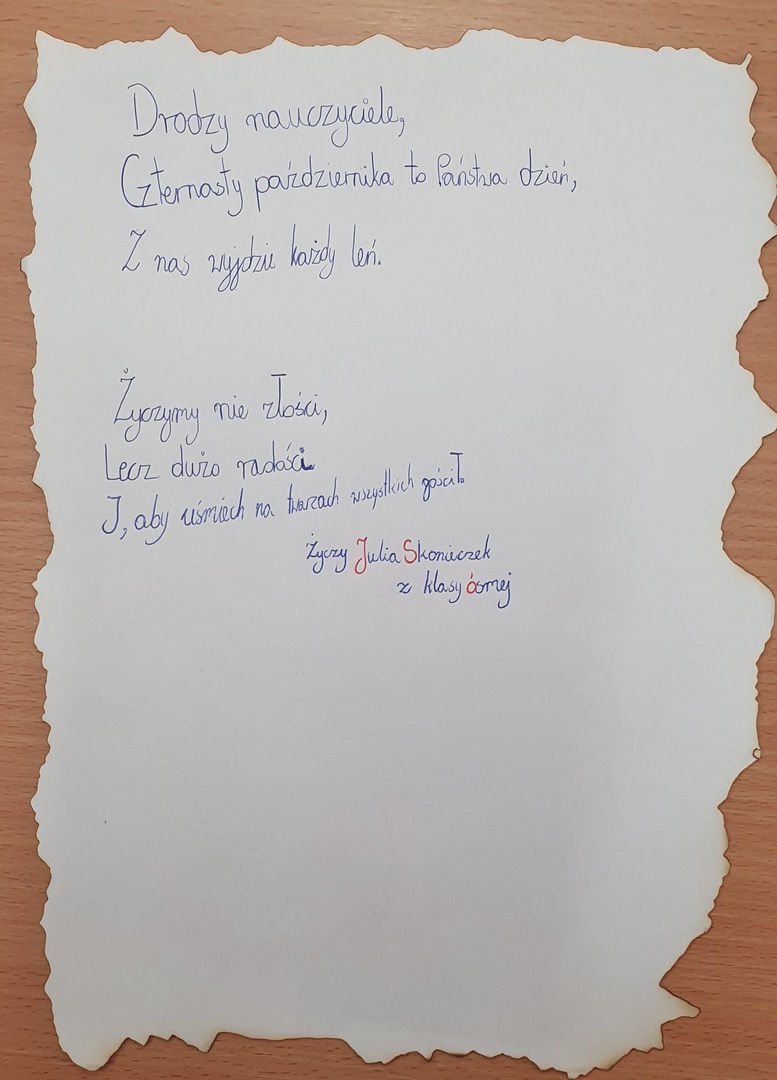 Drodzy nauczyciele,
Czternasty października to Państwa dzień,
Z nas wyjdzie każdy leń.
Życzymy nie złości,
Lecz dużo radości
I, aby uśmiech na twarzach wszystkich gościł.
Życzy Julia Skonieczek
z klasy ósmej